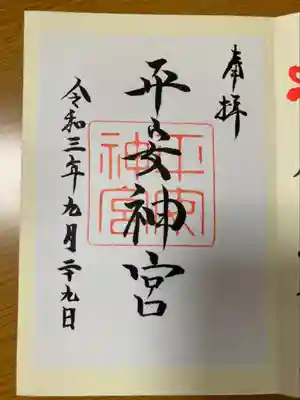 奉拝
平安神宮
平安神宮
令和三年九月二十九日